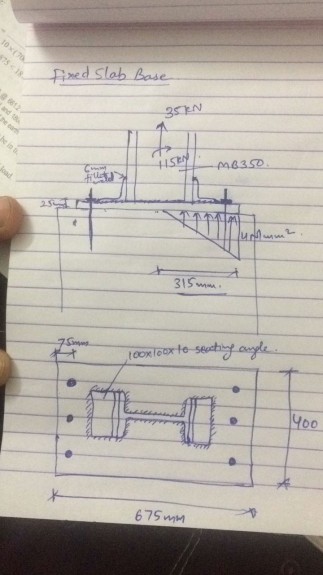 Fixed Slab Base
35 KN
115KN
MB350.
6mm
fillet
weld
25mm
4 N/mm².
315mm.
75mm
100x100x10 seating angle.
400
675mm